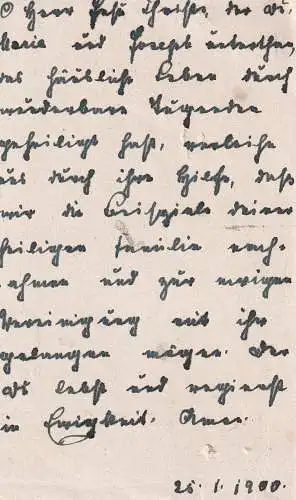 O Herr Jesu Christe, der du
Maria und Joseph unterthan,
das häusliche Leben durch
wunderbare Tugenden
geheiligt hast, verleihe
uns durch ihre Hilfe, daß
wir die Beispiele deiner
heiligen Familie nach-
ahmen und zur ewigen
Vereinigung mit ihr
gelangen mögen. Der
du lebst und regierst
in Ewigkeit. Amen.
25. 1. 1900.